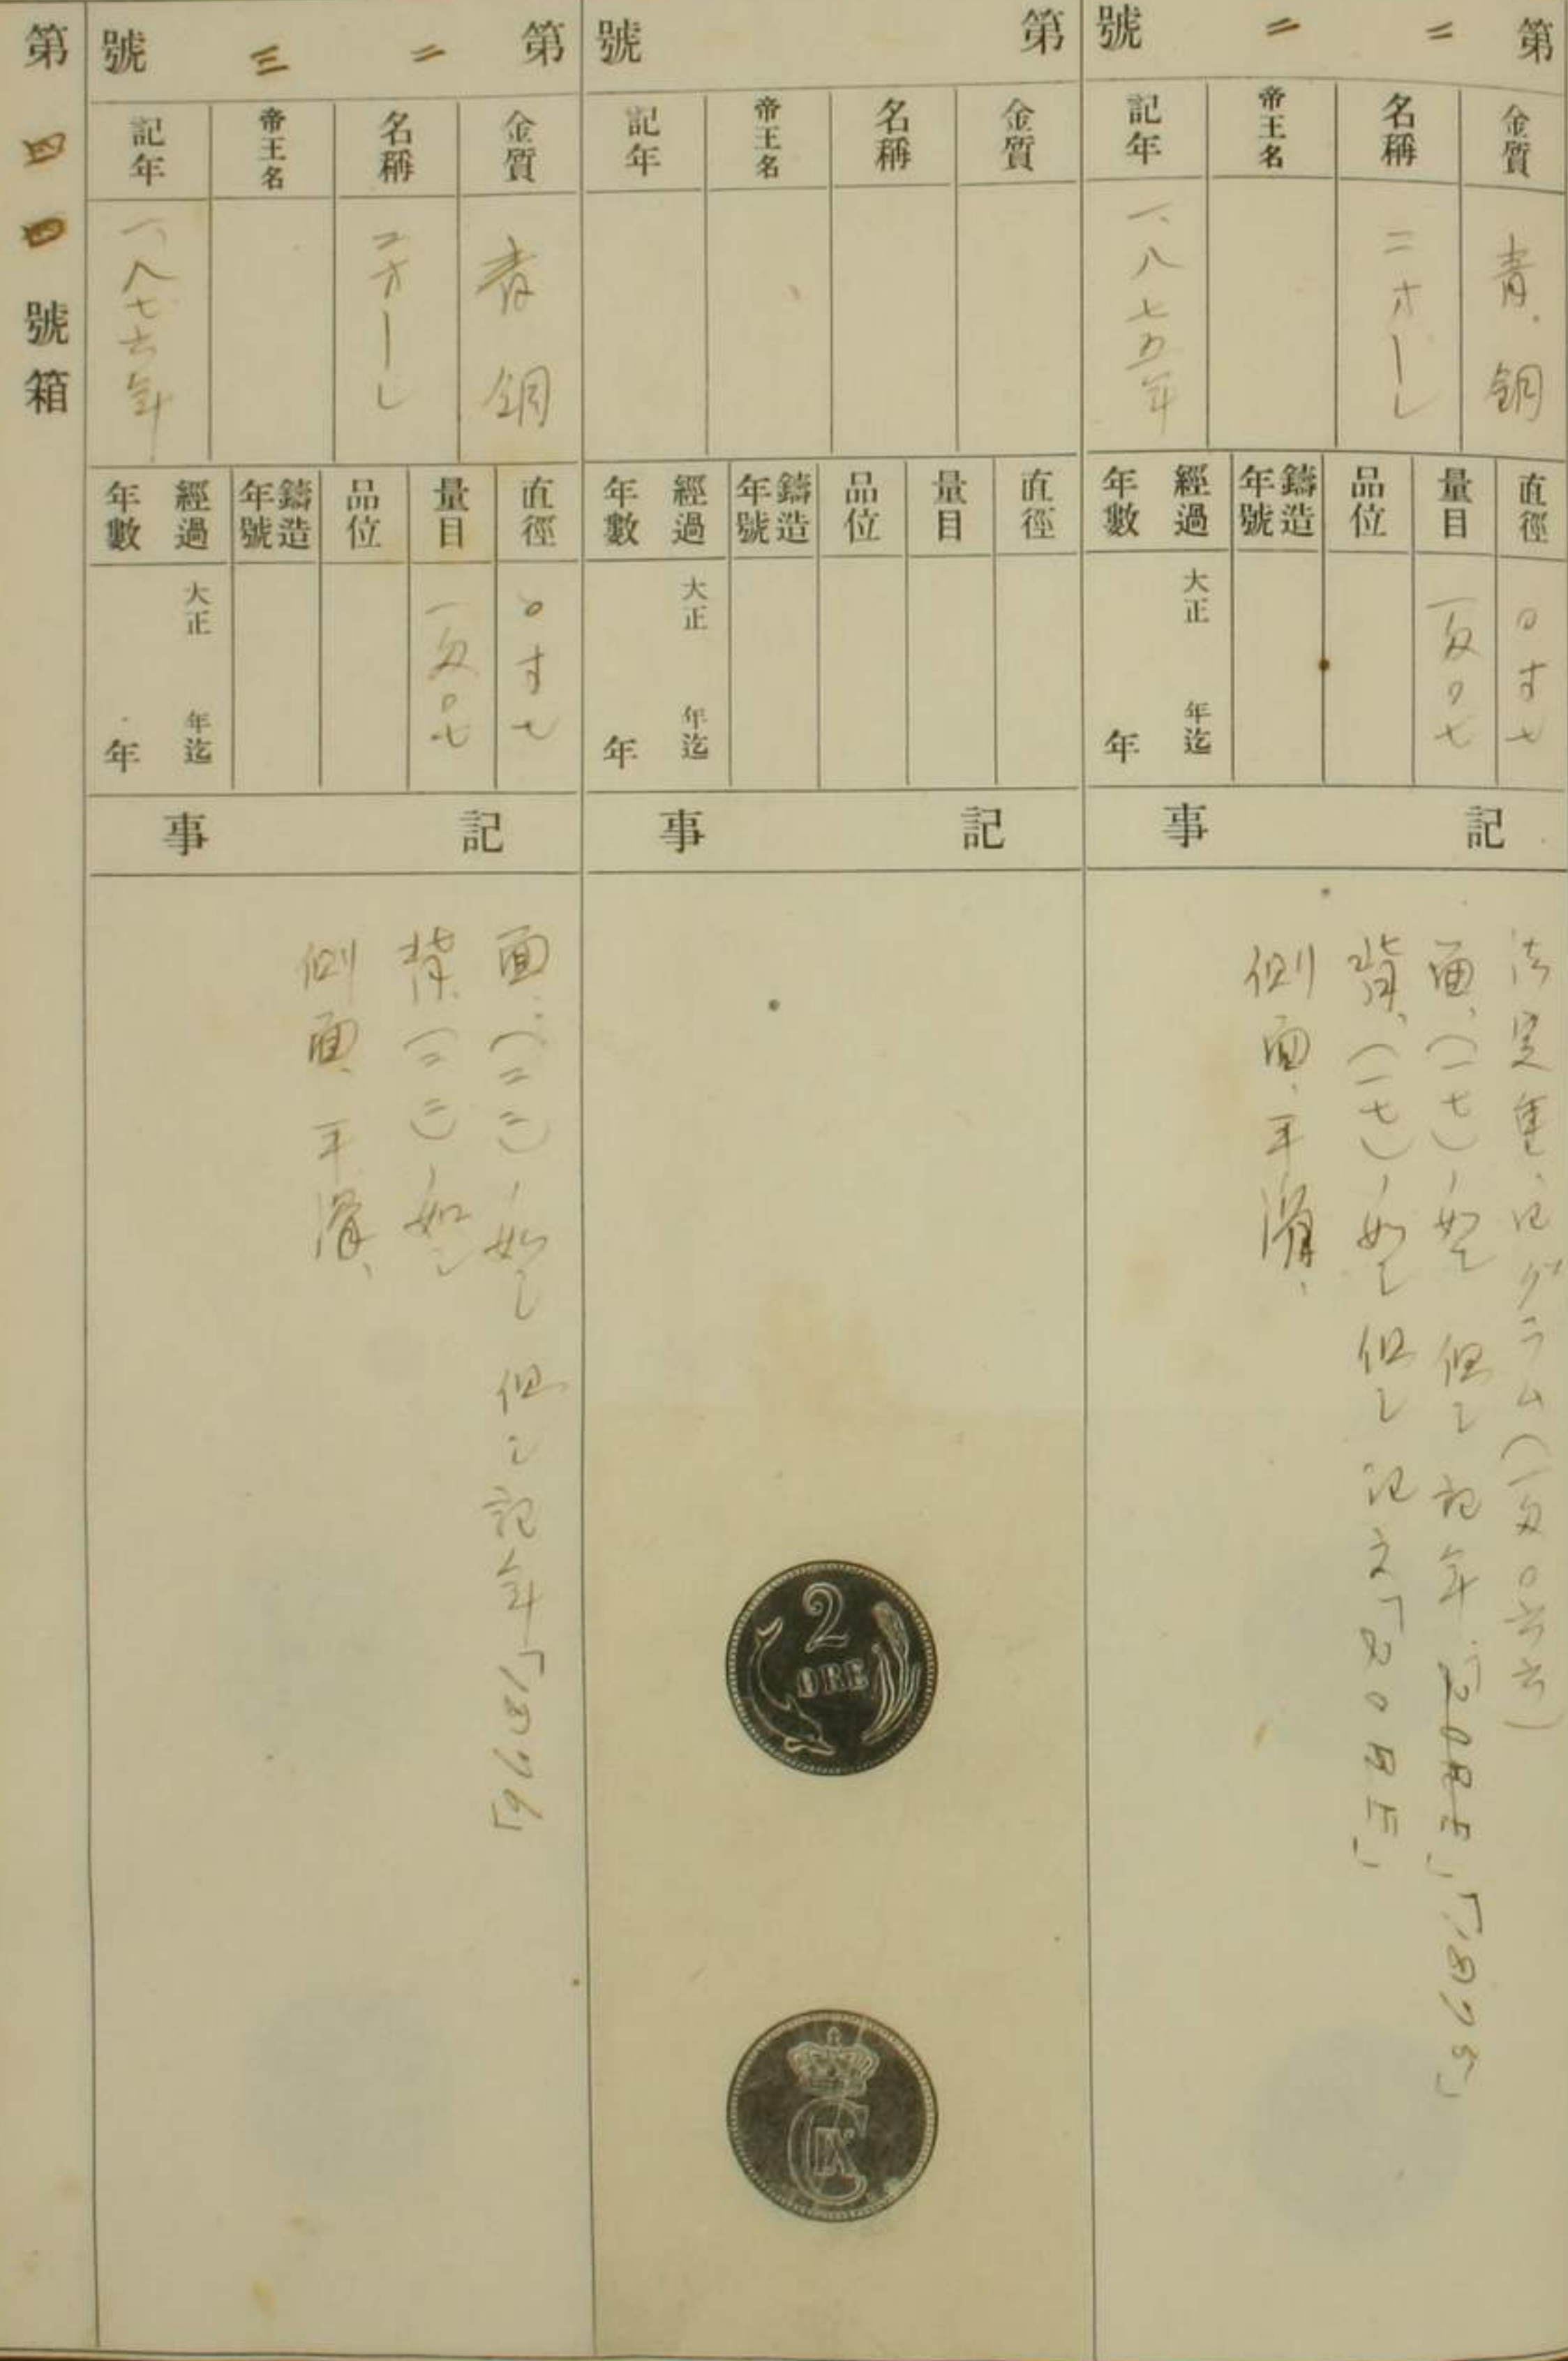 第二二號
金質
青銅
名稱
二オーレ
帝王名
記年
一、八七五年
直徑
〇寸七
量目
一匁〇七
品位
鑄造年號
經過年數
大正 年迄
年
記事
法定量、四グラム(一匁〇六六)
面、(一七)ノ如シ 但シ記年「1875」
背、(一七)ノ如シ 但シ記文「2 ORE」
側面、平滑、
第 號
金質
名稱
帝王名
記年
直徑
量目
品位
鑄造年號
經過年數
大正 年迄
年
記事
2
ØRE
C IX
第二三號
金質
青銅
名稱
二オーレ
帝王名
記年
一、八七六年
直徑
〇寸七
量目
一匁〇七
品位
鑄造年號
經過年數
大正 年迄
年
記事
面、(二二)ノ如シ 但シ記年「1876」
背、(二二)ノ如シ
側面、平滑、
第四四號箱